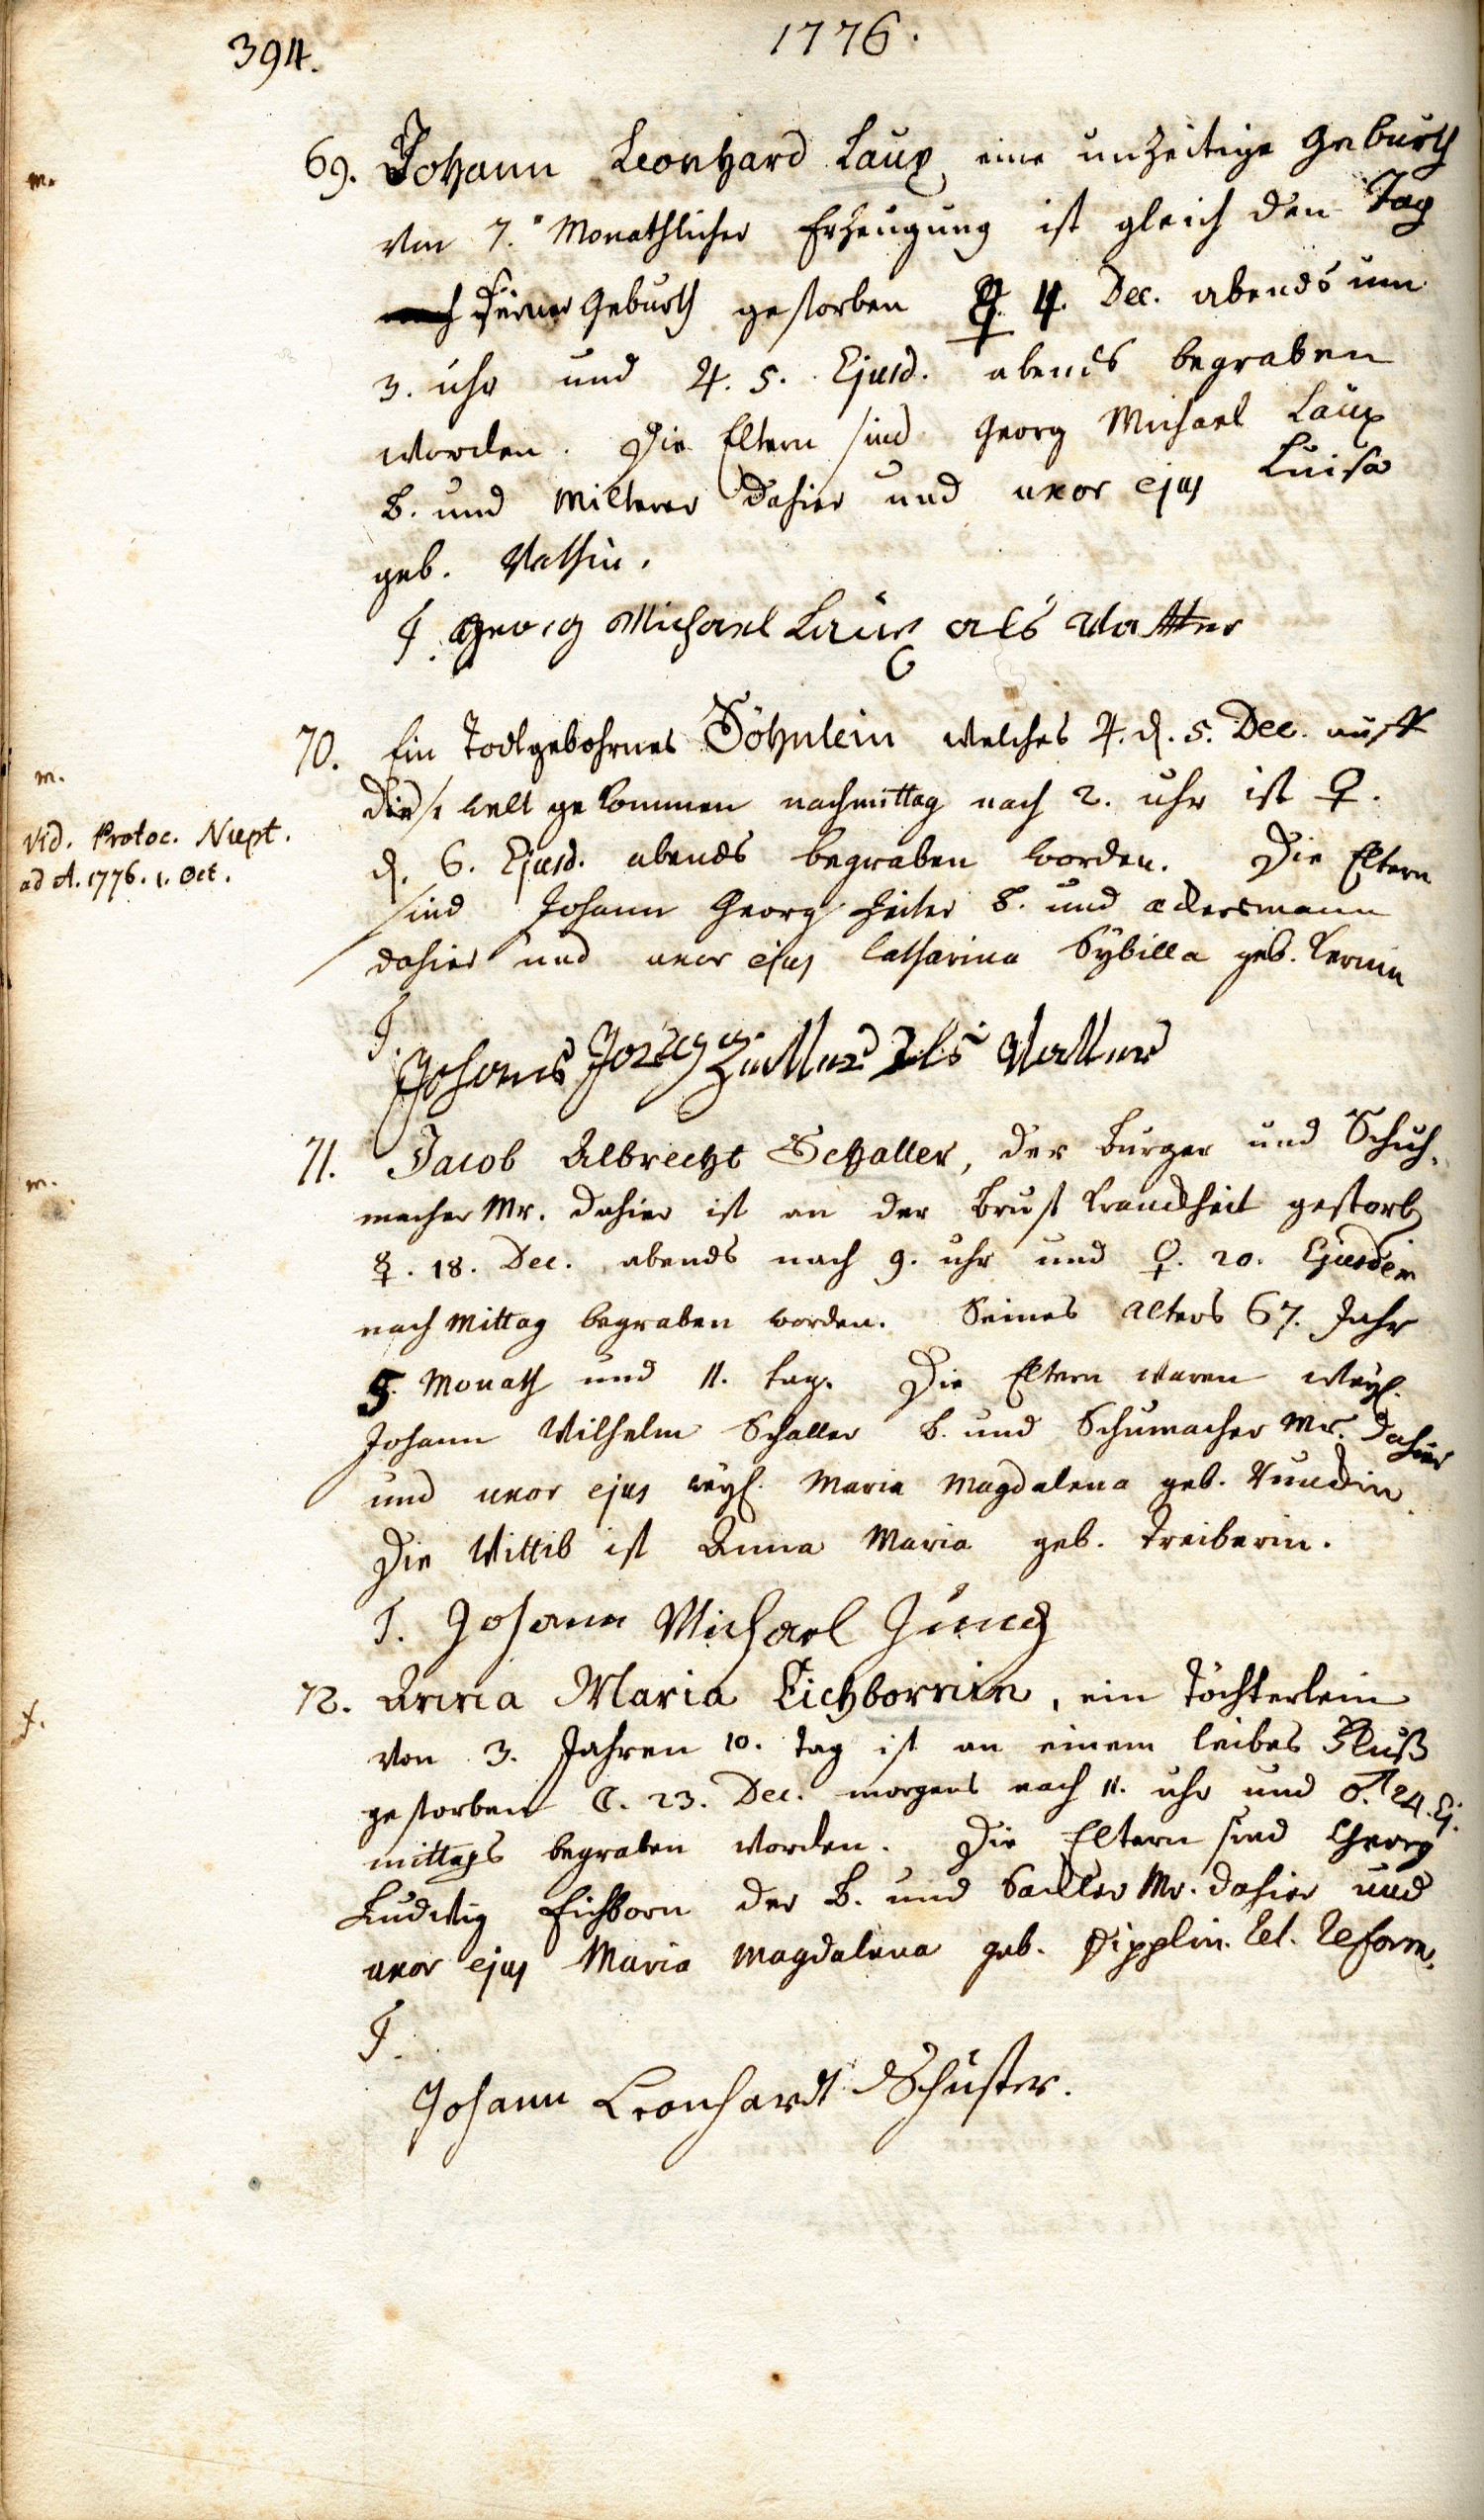 394.
1776.
m.
69. Johann Leonhard Laux, eine unzeitige Geburth
von 7. Monathlicher Erzeugung ist gleich den Tag
seiner Geburth gestorben ☿ 4. Dec. abends um
3. uhr und ♃. 5. Ejusd. abends begraben
worden. Die Eltern sind Georg Michael Laux
B. und dahier und uxor ejus Luisa
geb.
T. Georg Michael Laux als Vatter
m.
Vid. Protoc. Nupt.
ad A. 1776. 1. Oct.
70. Ein Todtgebohrnes Söhnlein welches ♃. d. 5. Dec. auff
diese welt gekommen nachmittag nach 2. uhr ist ♀.
d. 6. Ejusd. abends begraben worden. Die Eltern
sind Johann Georg B. und ackersmann
dahier und uxor ejus Catharina Sÿbilla geb.
T.
Johans Jorg als Vatter
m.
71. Jacob Albrecht Schaller, der Burger und Schuh-
macher Mr. dahier ist an der Brust Kranckheit gestorb
☿. 18. Dec. abends nach 9. uhr und ♀. 20. Ejusdem
nach Mittag begraben worden. Seines Alters 67. Jahr
5. Monath und 11. tag. Die Eltern waren weyl.
Johann Wilhelm Schaller B. und Schumacher Mr. dahier
und uxor ejus weyl. Maria Magdalena geb.
Die Wittib ist Anna Maria geb. Treiberin.
T. Johann Michael Jung
f.
72. Anna Maria Eichbornin, ein Töchterlein
von 3. Jahren 10. tag ist an einem leibes Fluß
gestorben ☾. 23. Dec. morgens nach 11. uhr und ♂. 24. Ej.
mittags begraben worden. Die Eltern sind Georg
Ludwig Eichborn der B. und Sattler Mr. dahier und
uxor ejus Maria Magdalena geb. Rel. Reform.
T.
Johann Leonhardt Schuster.